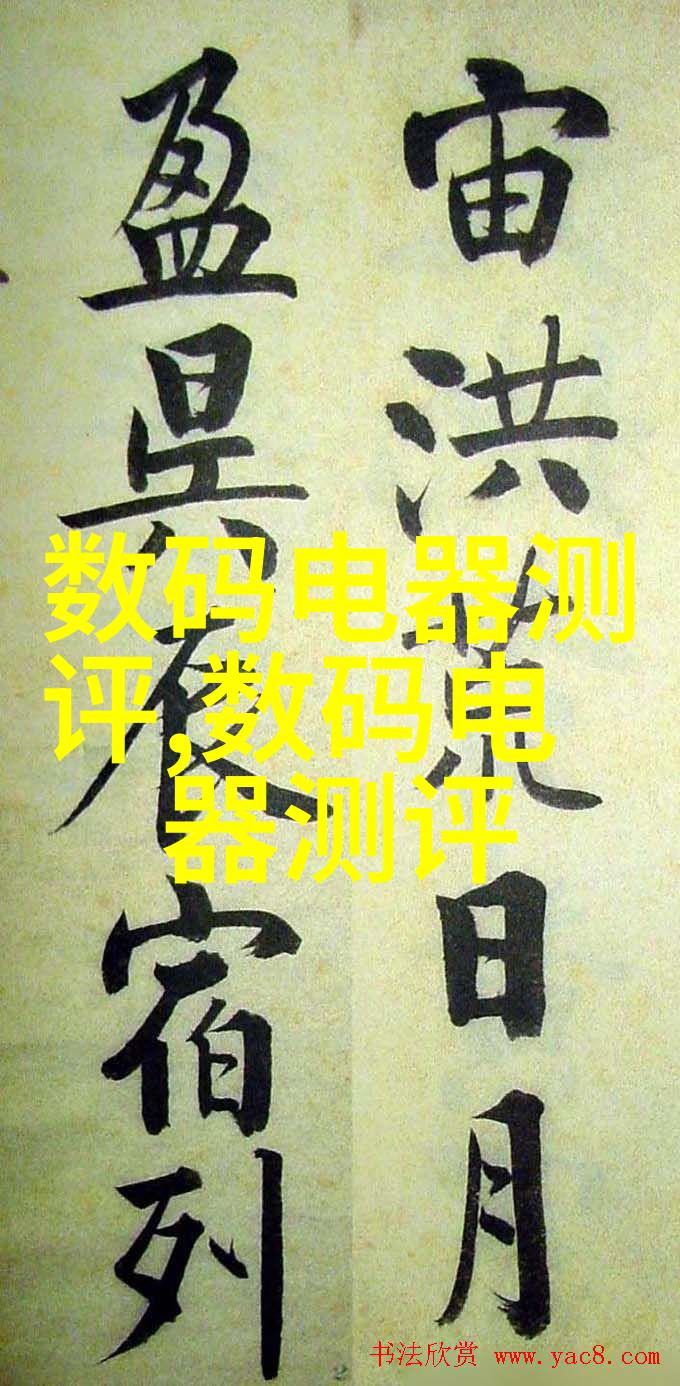 宙洪荒日月
盈昃辰宿列
数码电器测
评,数码电
器测评
书法欣赏 www.yac8.com
2